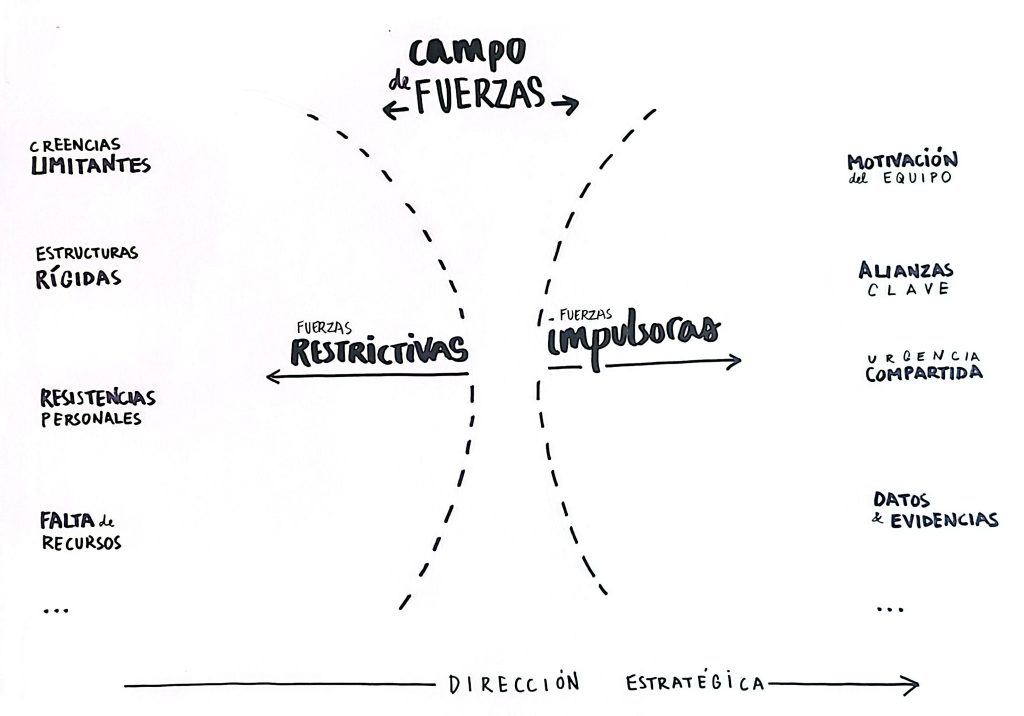 campo
de FUERZAS
CREENCIAS
LIMITANTES
ESTRUCTURAS
RÍGIDAS
RESISTENCIAS
PERSONALES
FALTA de
RECURSOS
...
FUERZAS
RESTRICTIVAS
FUERZAS
impulsoras
MOTIVACIÓN
del EQUIPO
ALIANZAS
CLAVE
URGENCIA
COMPARTIDA
DATOS
& EVIDENCIAS
...
DIRECCIÓN ESTRATÉGICA